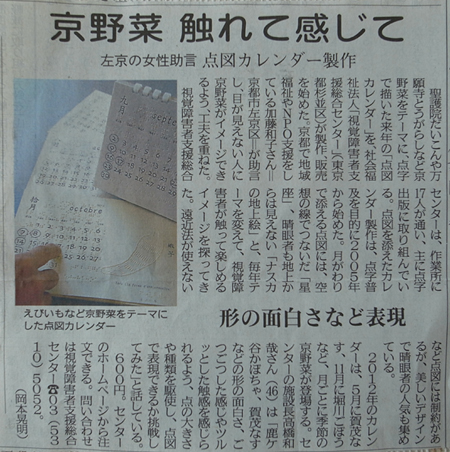 京野菜 触れて感じて
左京の女性助言 点図カレンダー製作
聖護院だいこんや万
願寺とうがらしなど京
野菜をテーマに、点字
で描いた来年の「点図
カレンダー」を、社会福
祉法人「視覚障害者支
援総合センター」(東京
都杉並区)が製作、販売
を始めた。京都で地域
福祉やNPO支援をし
ている加藤和子さん＝
京都市左京区＝が助言
し、目が見えない人に
京野菜がイメージでき
るよう、工夫を重ねた。
視覚障害者支援総合
センターは、作業所に
17人が通い、主に点字
出版に取り組んでい
る。点図を添えたカレ
ンダー製作は、点字普
及を目的に2005年
から始めた。月がわり
で添える点図には、空
想の線でつないだ「星
座」、晴眼者も地上か
らは見えない「ナスカ
の地上絵」と、毎年テ
ーマを変えて、視覚障
害者が触って楽しめる
イメージを探ってき
た。遠近法が使えない
えびいもなど京野菜をテーマに
した点図カレンダー
形の面白さなど表現
など点図では制約があ
るが、美しいデザイン
で晴眼者の人気も集め
ている。
2012年のカレン
ダーは、5月に賀茂な
す、11月に堀川ごぼう
など、月ごとに季節の
京野菜が登場する。セ
ンターの施設長高橋和
哉さん(46)は「鹿ケ
谷かぼちゃ、賀茂なす
などの形の面白さ、ご
つごつした感じやツル
ッとした触感を感じら
れるよう、点の大きさ
や種類を駆使し、点図
で表現できるか挑戦し
てみた」と話している。
600円。センター
のホームページから注
文できる。問い合わせ
は視覚障害者支援総合
センター☎03(53
10)5052。
(岡本晃明)